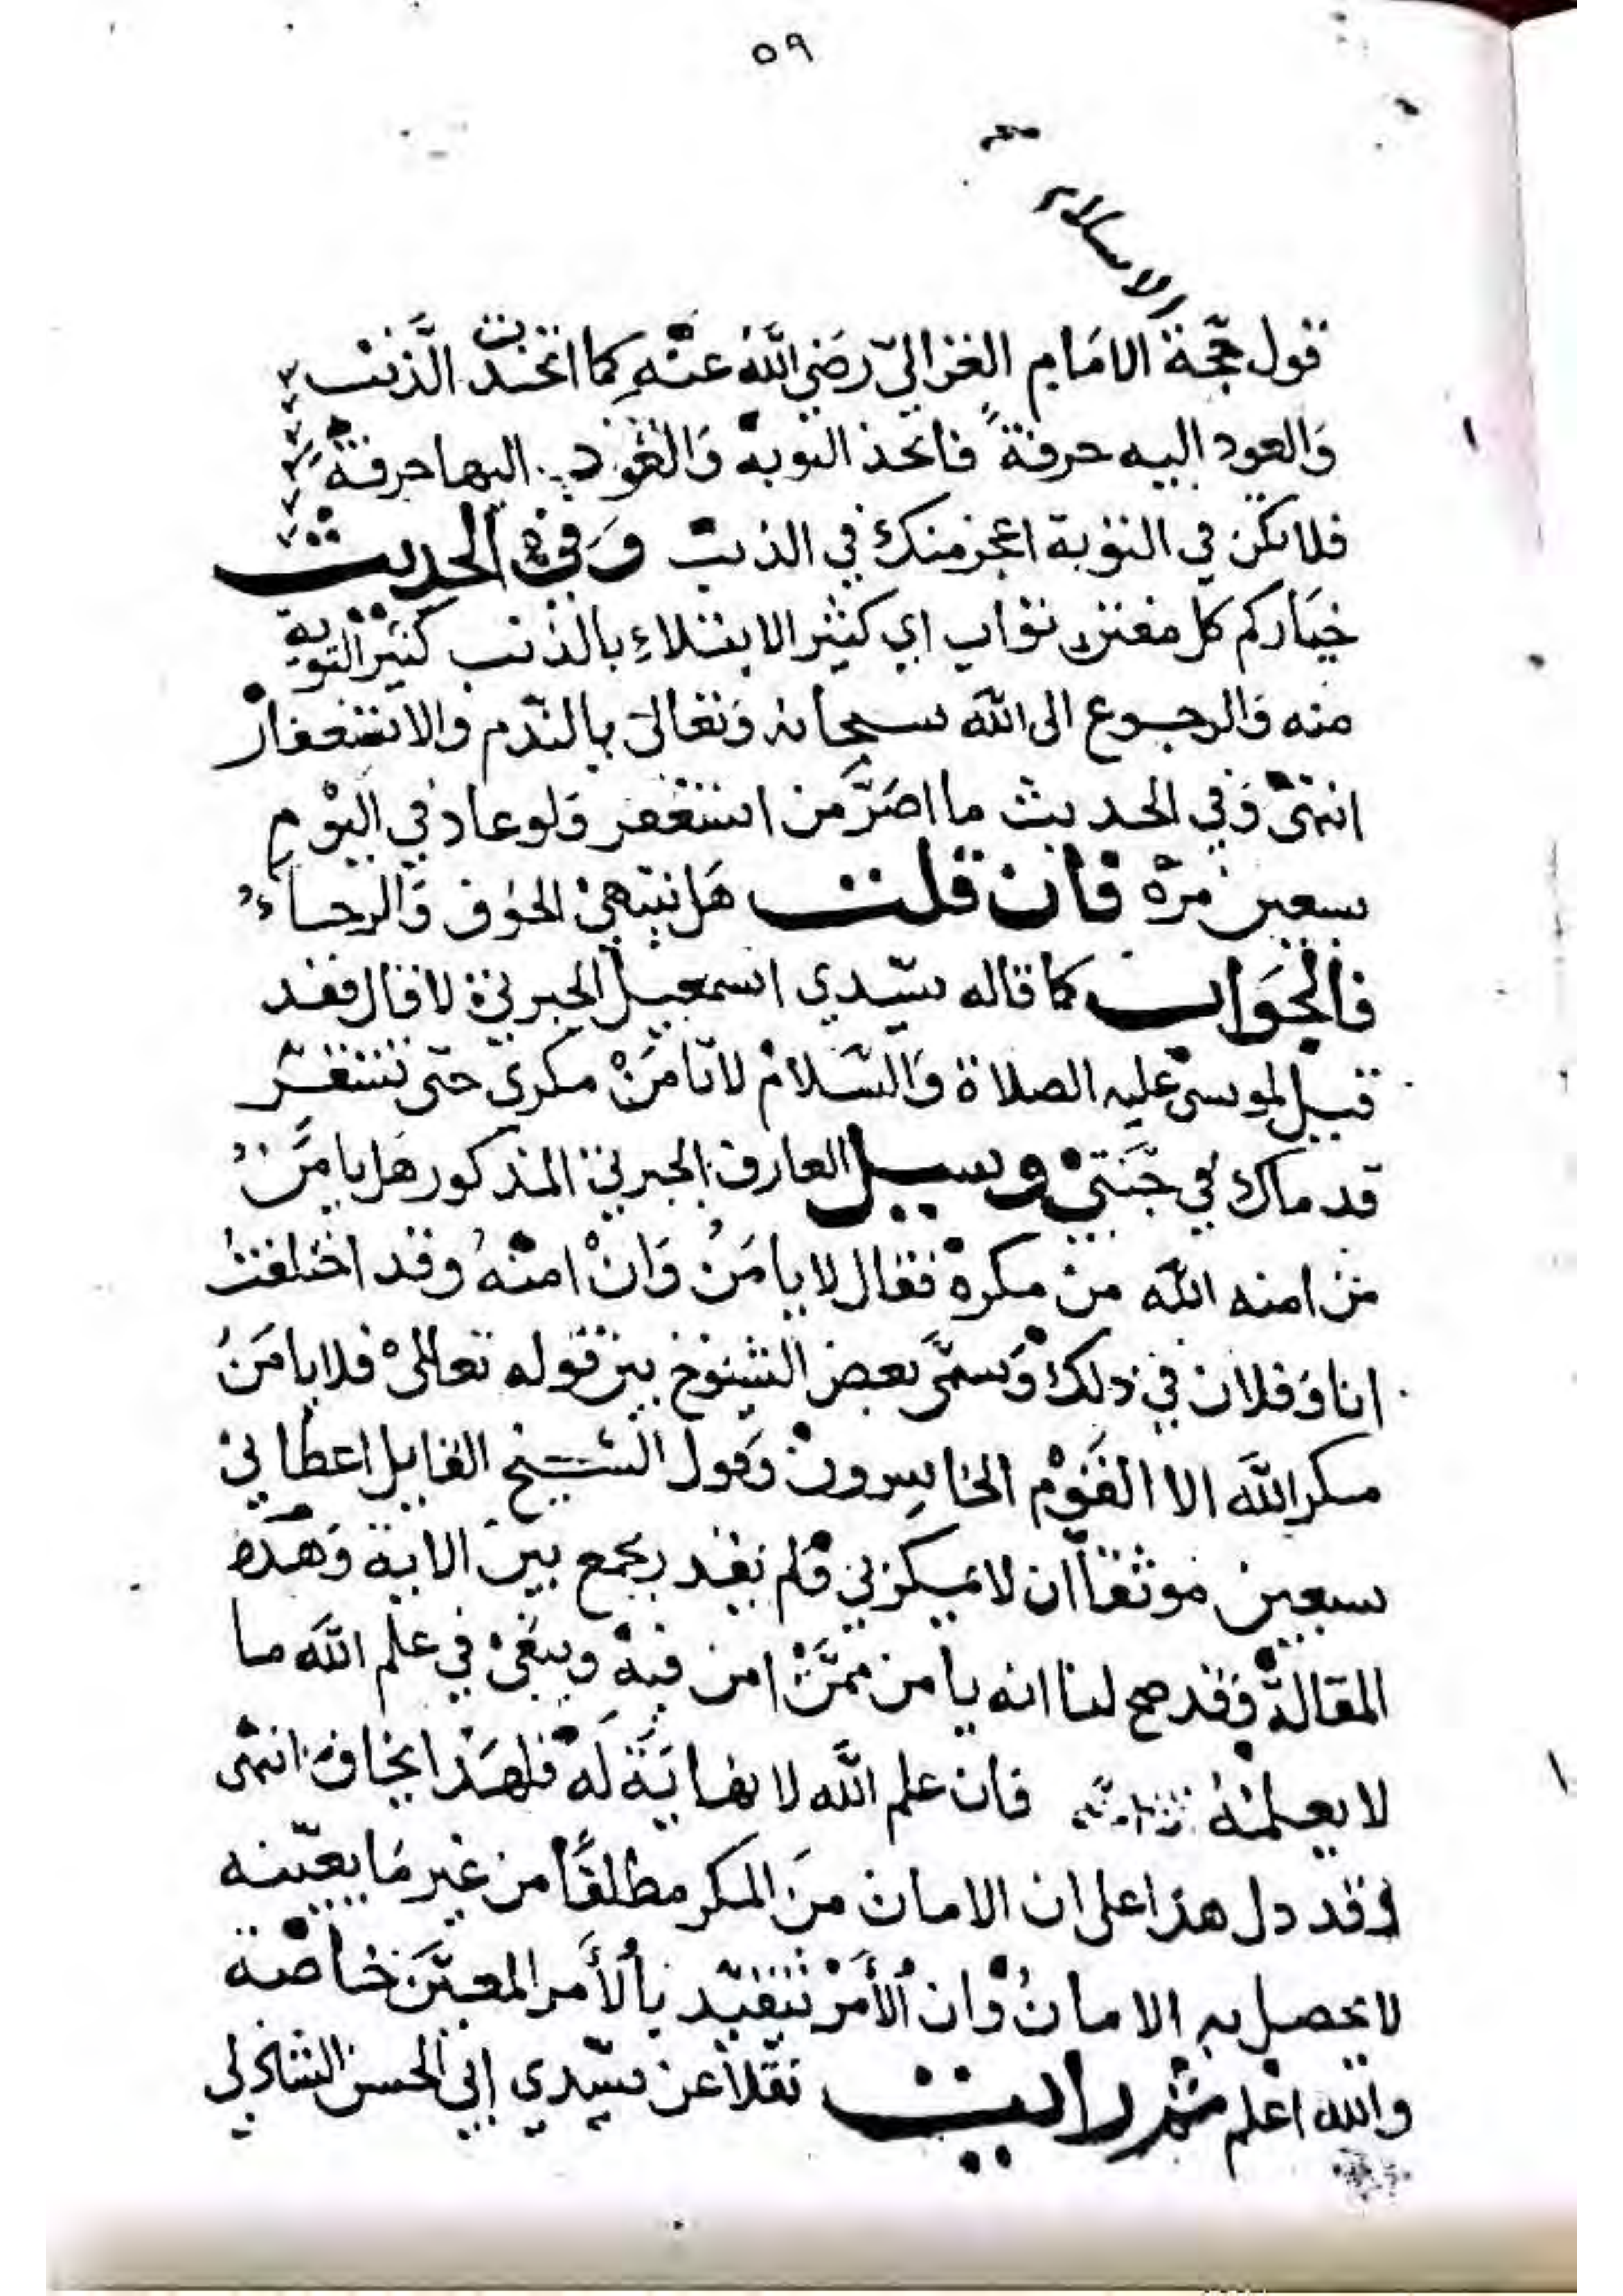 ٥٩
الاسلام
قول حجّة الامَام الغزاليّ رضي اللّه عنه كما اتخذت الذنب
وَالعود اليه حرفةً فاتخذ التوبة وَالعَود اليها حرفة
فلا تكن في التوبة اعجز منك في الذنب وَفي الحديث
خيَاركم كل مفتن تواب اي كثير الابتلاءِ بالذنب كثير التوبة
منه وَالرجوع الى اللّه سبحانه وَتعَالى بالندم والاستغفار
انتهى وَفي الحديث ما اصَرَّ من استغفر وَلو عاد في اليوْم
سبعين مرّة فان قلت هَل ينتهي الخوف وَالرجاء
فالجَواب كما قاله سيّدي اسمعيل الجبرتي لا قال فقد
قيل لموسى عليه الصلاة وَالسَّلام لا تامَنْ مكري حتى تستقر
قدماك في جَنّتي وسيل العارف الجبرتي المذكور هل يامَن
من امنه اللّه من مكره فقال لا يامَنُ وَانْ امنهُ وقد اختلفت
انا وَفلان في ذلك وَسمَّى بعض الشيوخ بين قوله تعالى فلا يامَنُ
مكر اللّه الا القوْم الخاسِرون وَقول الشيخ القايل اعطاني
سبعين موثقاً ان لا يمكر بي فلم يقدر يجمع بين الاية وَهذه
المقالة فقد صح لنا انه يامن ممَّن امن فيه ويبقى في علم اللّه ما
لا يعلمهُ فان علم اللّه لا نهايَة لَهُ فلهَذا يخاف انتهى
وقد دل هذا على ان الامان منَ المكر مطلقاً من غير مَا يعيّنه
لا يحصل به الامانُ وَان الأمْر يتقيّد بالأمر المعيَّن خاصّة
والله اعلم ثم رايت نقلاً عن سيّدي ابي الحسن الشاذلي